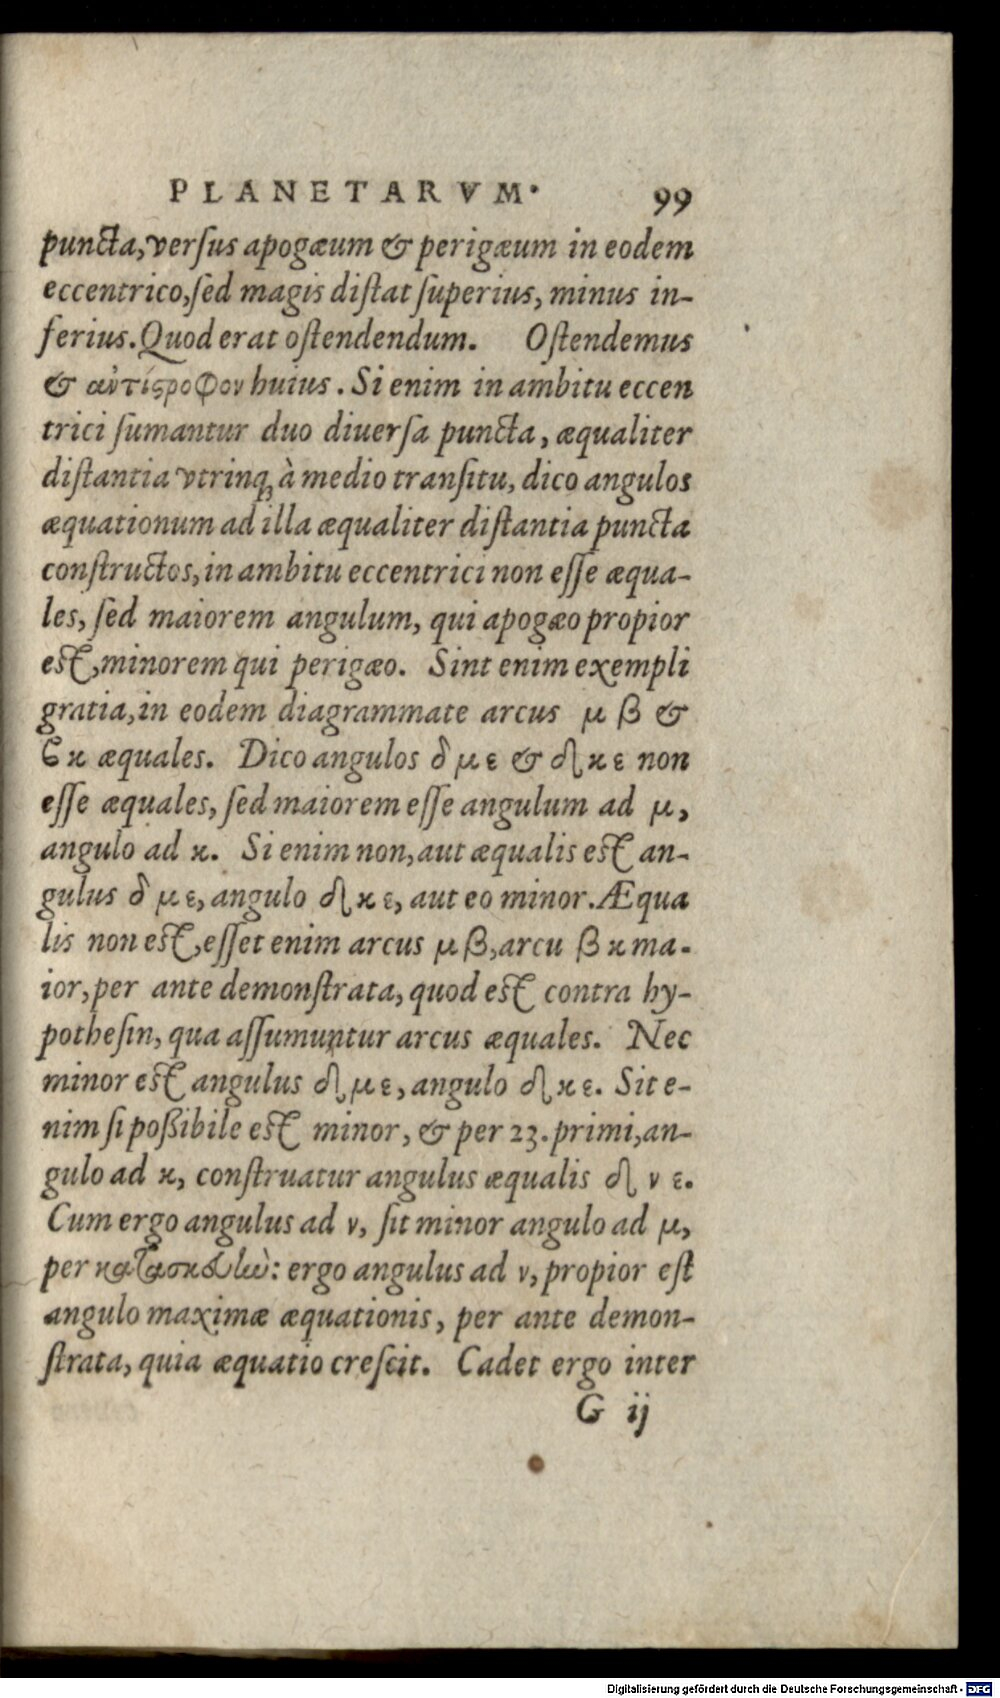 PLANETARVM. 99
puncta, versus apogæum & perigæum in eodem
eccentrico, sed magis distat superius, minus in-
ferius. Quod erat ostendendum. Ostendemus
& αντίςροφον huius. Si enim in ambitu eccen
trici sumantur duo diuersa puncta, æqualiter
distantia vtrinq; à medio transitu, dico angulos
æquationum ad illa æqualiter distantia puncta
constructos, in ambitu eccentrici non esse æqua-
les, sed maiorem angulum, qui apogæo propior
est, minorem qui perigæo. Sint enim exempli
gratia, in eodem diagrammate arcus μ β &
β κ æquales. Dico angulos δ μ ε & δ κ ε non
esse æquales, sed maiorem esse angulum ad μ,
angulo ad κ. Si enim non, aut æqualis est an-
gulus δ μ ε, angulo δ κ ε, aut eo minor. Æqua
lis non est, esset enim arcus μ β, arcu β κ ma-
ior, per ante demonstrata, quod est contra hy-
pothesin, qua assumuntur arcus æquales. Nec
minor est angulus δ μ ε, angulo δ κ ε. Sit e-
nim si poßibile est minor, & per 23. primi, an-
gulo ad κ, construatur angulus æqualis δ ν ε.
Cum ergo angulus ad ν, sit minor angulo ad μ,
per κατασκευὼ: ergo angulus ad ν, propior est
angulo maximæ æquationis, per ante demon-
strata, quia æquatio crescit. Cadet ergo inter
G ij
Digitalisierung gefördert durch die Deutsche Forschungsgemeinschaft - DFG